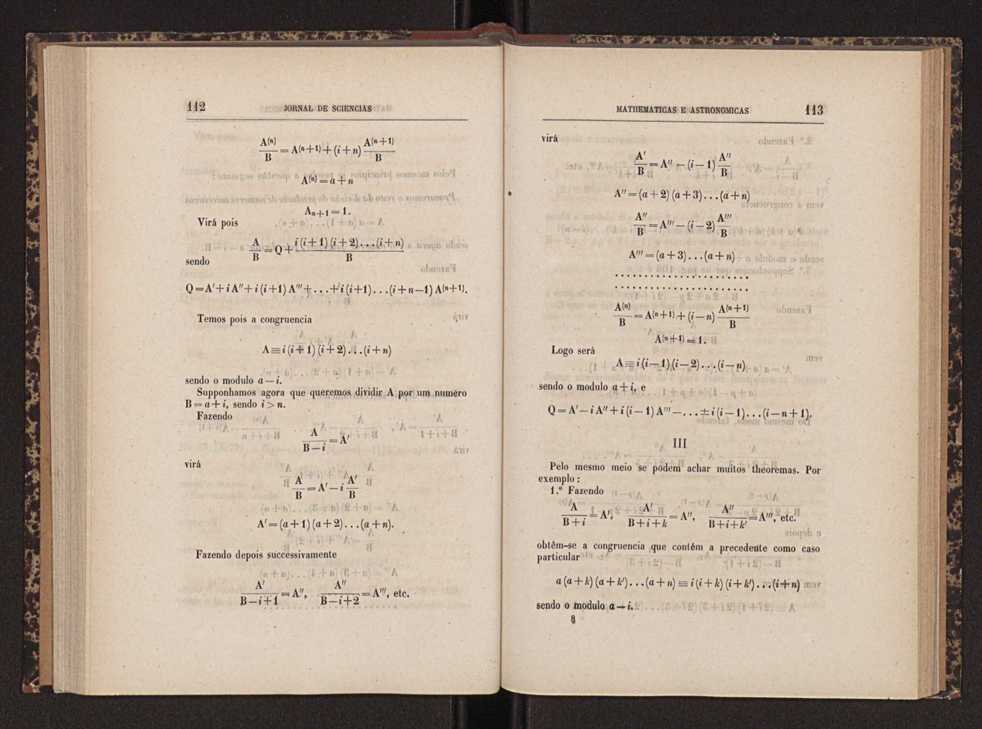 112 JORNAL DE SCIENCIAS
A⁽ⁿ⁾/B = A⁽ⁿ⁺¹⁾ + (i + n) A⁽ⁿ⁺¹⁾/B
A⁽ⁿ⁾ = a + n
Aₙ₊₁ = 1.
Virá pois
A/B = Q + i (i + 1) (i + 2)...(i + n)/B
sendo
Q = A′ + i A″ + i (i+1) A‴ + ... + i (i+1)...(i + n−1) A⁽ⁿ⁺¹⁾.
Temos pois a congruencia
A ≡ i (i + 1) (i + 2)...(i + n)
sendo o modulo a — i.
Supponhamos agora que queremos dividir A por um numero
B = a + i, sendo i > n.
Fazendo
A/B − i = A′
virá
A/B = A′ − i A′/B
A′ = (a + 1) (a + 2)...(a + n).
Fazendo depois successivamente
A′/B − i + 1 = A″, A″/B − i + 2 = A‴, etc.
MATHEMATICAS E ASTRONOMICAS 113
virá
A′/B = A″ − (i − 1) A″/B
A″ = (a + 2) (a + 3)...(a + n)
A″/B = A‴ − (i − 2) A‴/B
A‴ = (a + 3)...(a + n)
. . . . . . . . . . . . . . . . . .
. . . . . . . . . . . . . . . . . .
A⁽ⁿ⁾/B = A⁽ⁿ⁺¹⁾ + (i − n) A⁽ⁿ⁺¹⁾/B
A⁽ⁿ⁺¹⁾ = 1.
Logo será
A ≡ i (i − 1) (i − 2)...(i − n)
sendo o modulo a + i, e
Q = A′ − i A″ + i (i − 1) A‴ − ... ± i (i − 1)...(i − n + 1).
III
Pelo mesmo meio se podem achar muitos theoremas. Por
exemplo:
1.º Fazendo
A/B + i = A′, A′/B + i + k = A″, A″/B + i + k′ = A‴, etc.
obtêm-se a congruencia que contém a precedente como caso
particular
a (a + k) (a + k′)...(a + n) ≡ i (i + k) (i + k′)...(i + n)
sendo o modulo a — i.
8